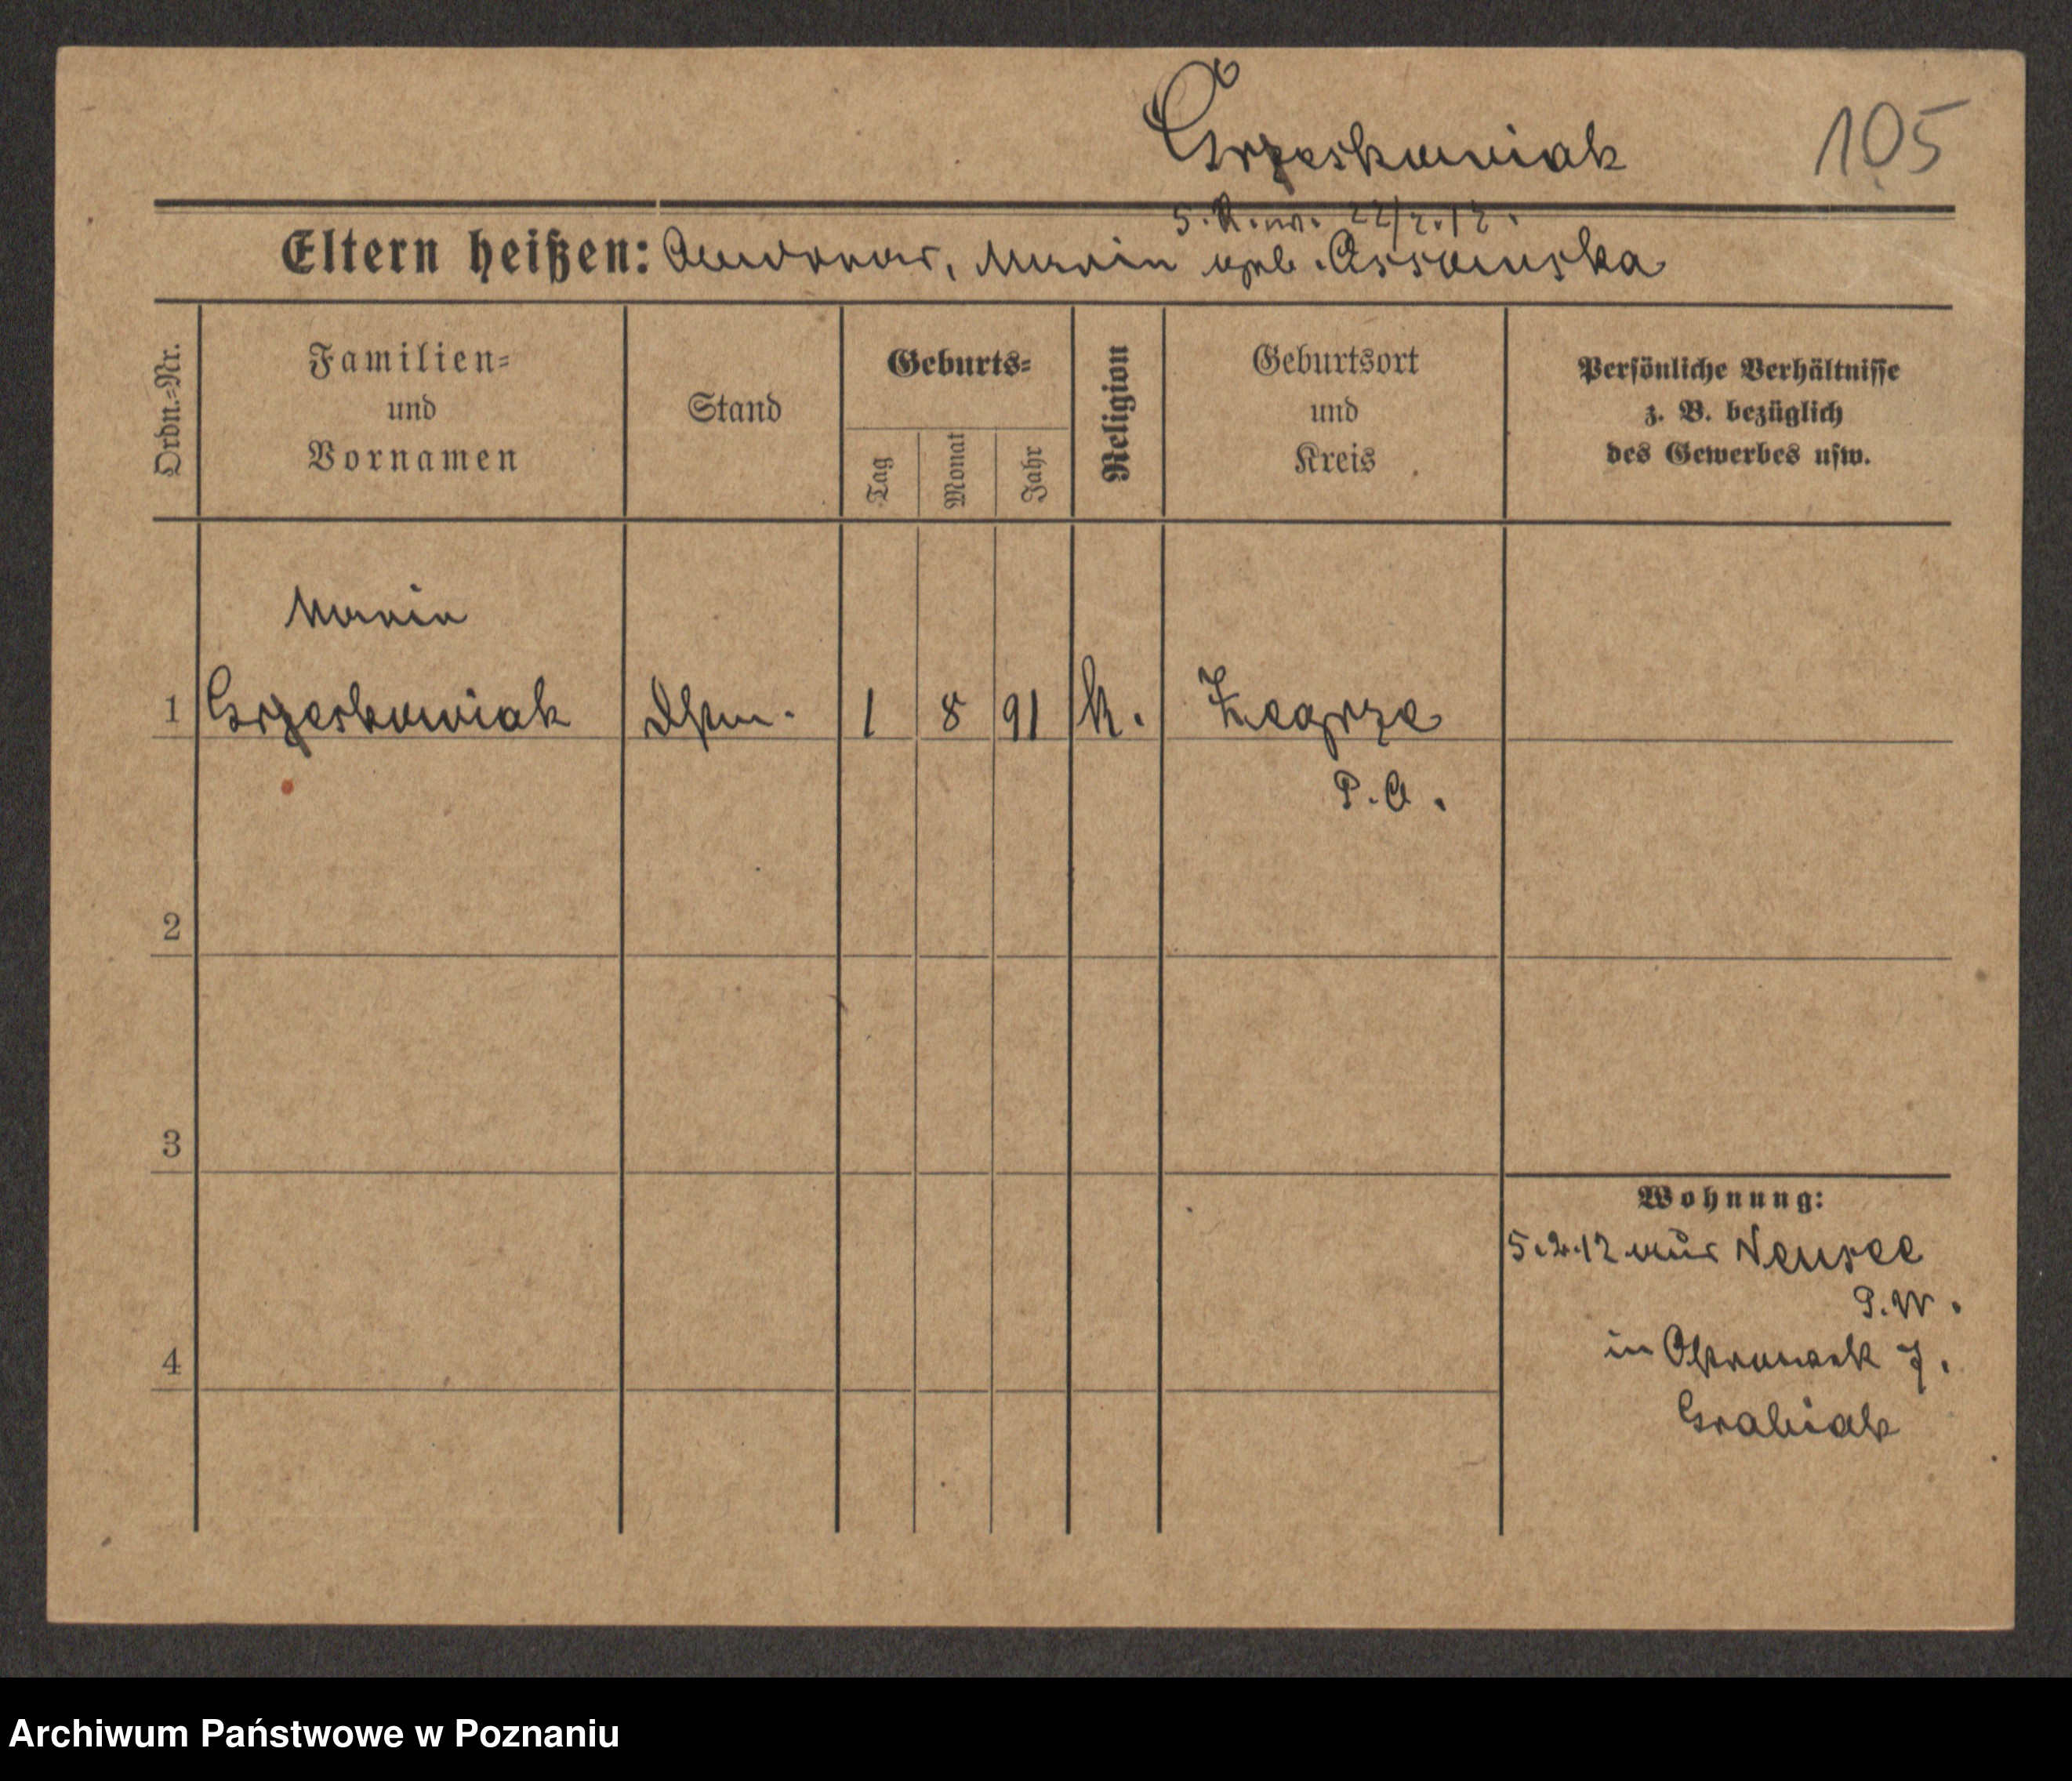 Grzeskowiak
105
5. K. nr. 22/2.12.
Eltern heißen: Andreas, Maria geb. Assamska
Ordn.-Nr.
Familien-
und
Vornamen
Stand
Geburts-
Tag
Monat
Jahr
Religion
Geburtsort
und
Kreis
Persönliche Verhältnisse
z. B. bezüglich
des Gewerbes usw.
Maria
1 Grzeskowiak Dstm. 1 8 91 k. Zegrze
P.O.
2
3
4
Wohnung:
5.2.12 aus Neusee
P.W.
in Ostrowek 7.
Grabiak
Archiwum Państwowe w Poznaniu